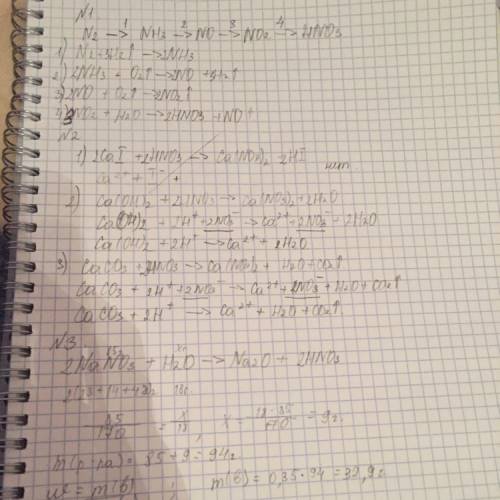 N1
N₂ —1→ NH₃ —2→ NO —3→ NO₂ —4→ HNO₃
1) N₂ + 3H₂↑ → 2NH₃
2) 2NH₃ + O₂↑ → 2NO + 3H₂↑
3) 2NO + O₂↑ → 2NO₂↑
4) 3NO₂ + H₂O → 2HNO₃ + NO↑
N2
1) 2CaI + 2HNO₃ → Ca(NO₃)₂ 2HI
нет
2) Ca(OH)₂ + 2HNO₃ → Ca(NO₃)₂ + 2H₂O
Ca(OH)₂ + 2H⁺ + 2NO₃⁻ → Ca²⁺ + 2NO₃⁻ + 2H₂O
Ca(OH)₂ + 2H⁺ → Ca²⁺ + 2H₂O
3) CaCO₃ + 2HNO₃ → Ca(NO₃)₂ + H₂O + CO₂↑
CaCO₃ + 2H⁺ + 2NO₃⁻ → Ca²⁺ + 2NO₃⁻ + H₂O + CO₂↑
CaCO₃ + 2H⁺ → Ca²⁺ + H₂O + CO₂↑
N3
85 xг
2NaNO₃ + H₂O → Na₂O + 2HNO₃
2(23+14+48) 18г
85/170 = x/18, x = 18·85/170 = 9г
m(р-ра) = 85 + 9 = 94г
w = m(в) m(в) = 0,35·94 = 32,9г